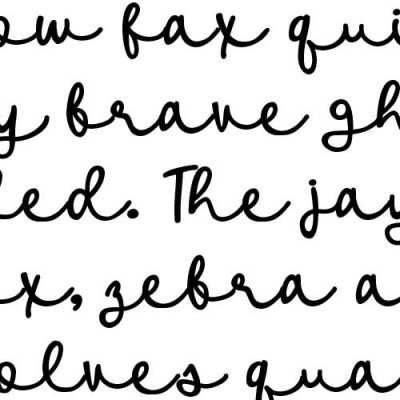 ow fax qui
y brave gh
ded. The jay
ax, zebra a
olves qua